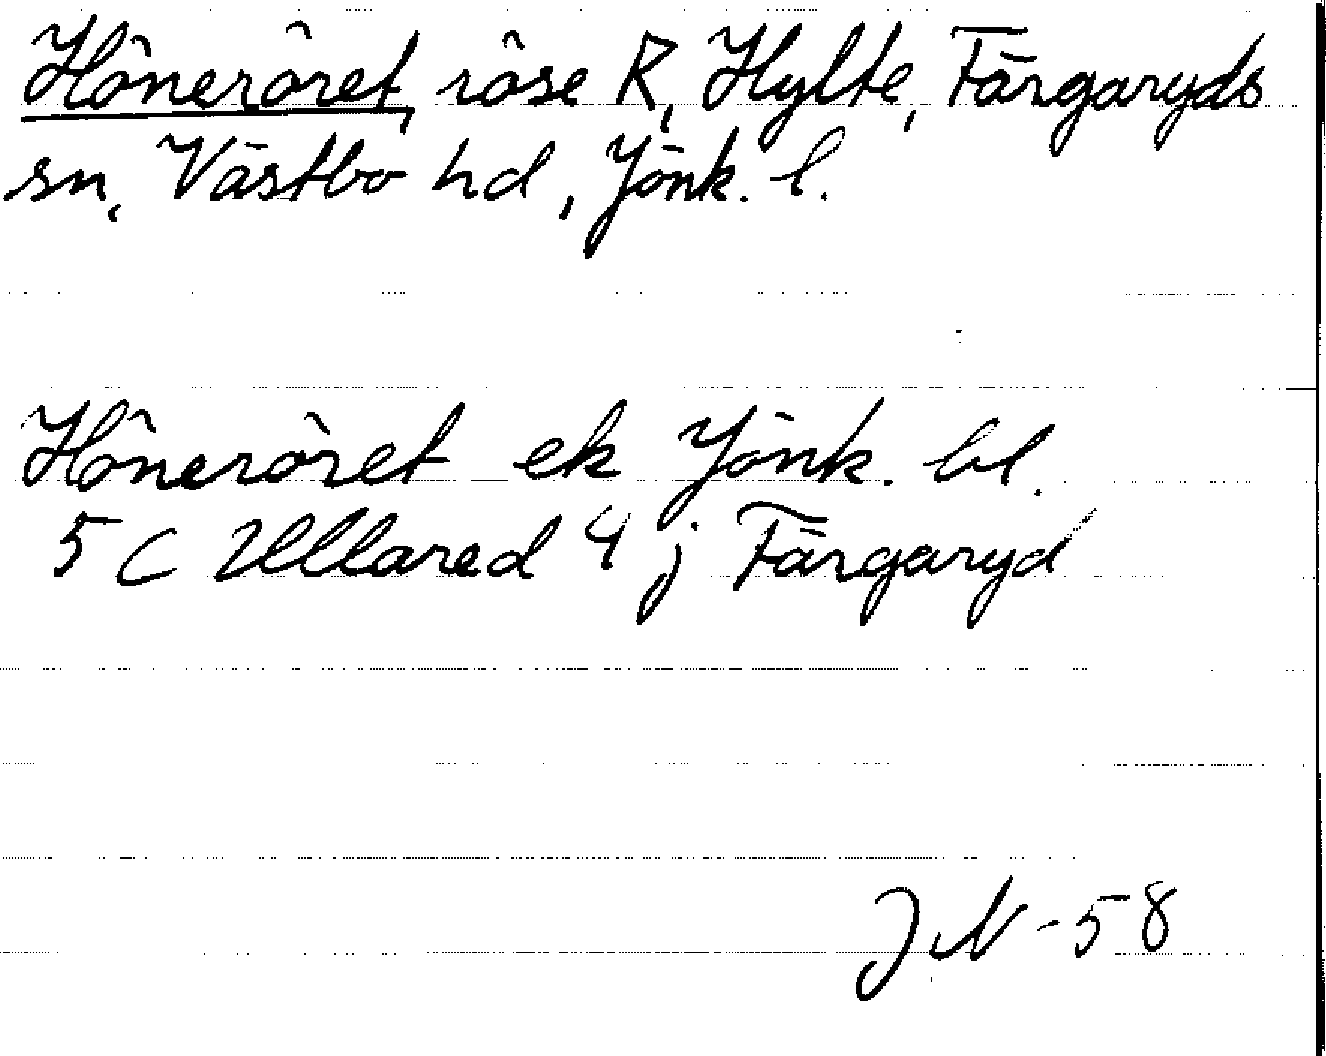 Höneröret, röse R, Hylte, Färgaryds
sn, Västbo hd, Jönk. l.
Höneröret ek Jönk. bl.
5 C Ullared 4 j Färgaryd
J.N -58